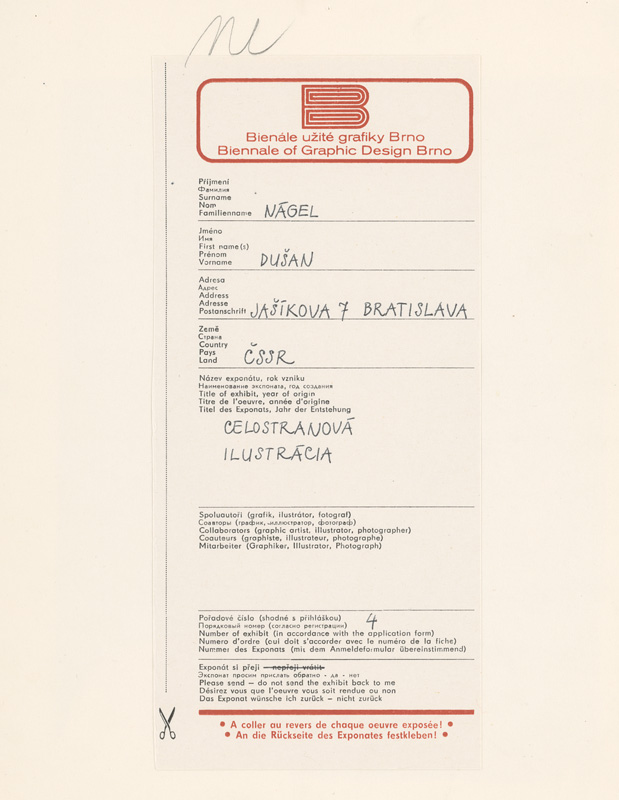 ne
Bienále užité grafiky Brno
Biennale of Graphic Design Brno
Příjmení
Фамилия
Surname
Nom
Familienname NÁGEL
Jméno
Имя
First name(s)
Prénom
Vorname DUŠAN
Adresa
Адрес
Address
Adresse
Postanschrift JAŠÍKOVA 7 BRATISLAVA
Země
Страна
Country
Pays
Land ČSSR
Název exponátu, rok vzniku
Наименование экспоната, год создания
Title of exhibit, year of origin
Titre de l'oeuvre, année d'origine
Titel des Exponats, Jahr der Entstehung
CELOSTRANOVÁ
ILUSTRÁCIA
Spoluautoři (grafik, ilustrátor, fotograf)
Соавторы (график, иллюстратор, фотограф)
Collaborators (graphic artist, illustrator, photographer)
Coauteurs (graphiste, illustrateur, photographe)
Mitarbeiter (Graphiker, Illustrator, Photograph)
Pořadové číslo (shodné s přihláškou) 4
Порядковый номер (согласно регистрации)
Number of exhibit (in accordance with the application form)
Numero d'ordre (qui doit s'accorder avec le numéro de la fiche)
Nummer des Exponats (mis dem Anmeldeformular übereinstimmend)
Exponát si přeji – nepřeji vrátit
Экспонат просим прислать обратно - да - нет
Please send – do not send the exhibit back to me
Désirez vous que l'oeuvre vous soit rendue ou non
Das Exponat wünsche ich zurück – nicht zurück
• A coller au revers de chaque oeuvre exposée! •
• An die Rückseite des Exponates festkleben! •